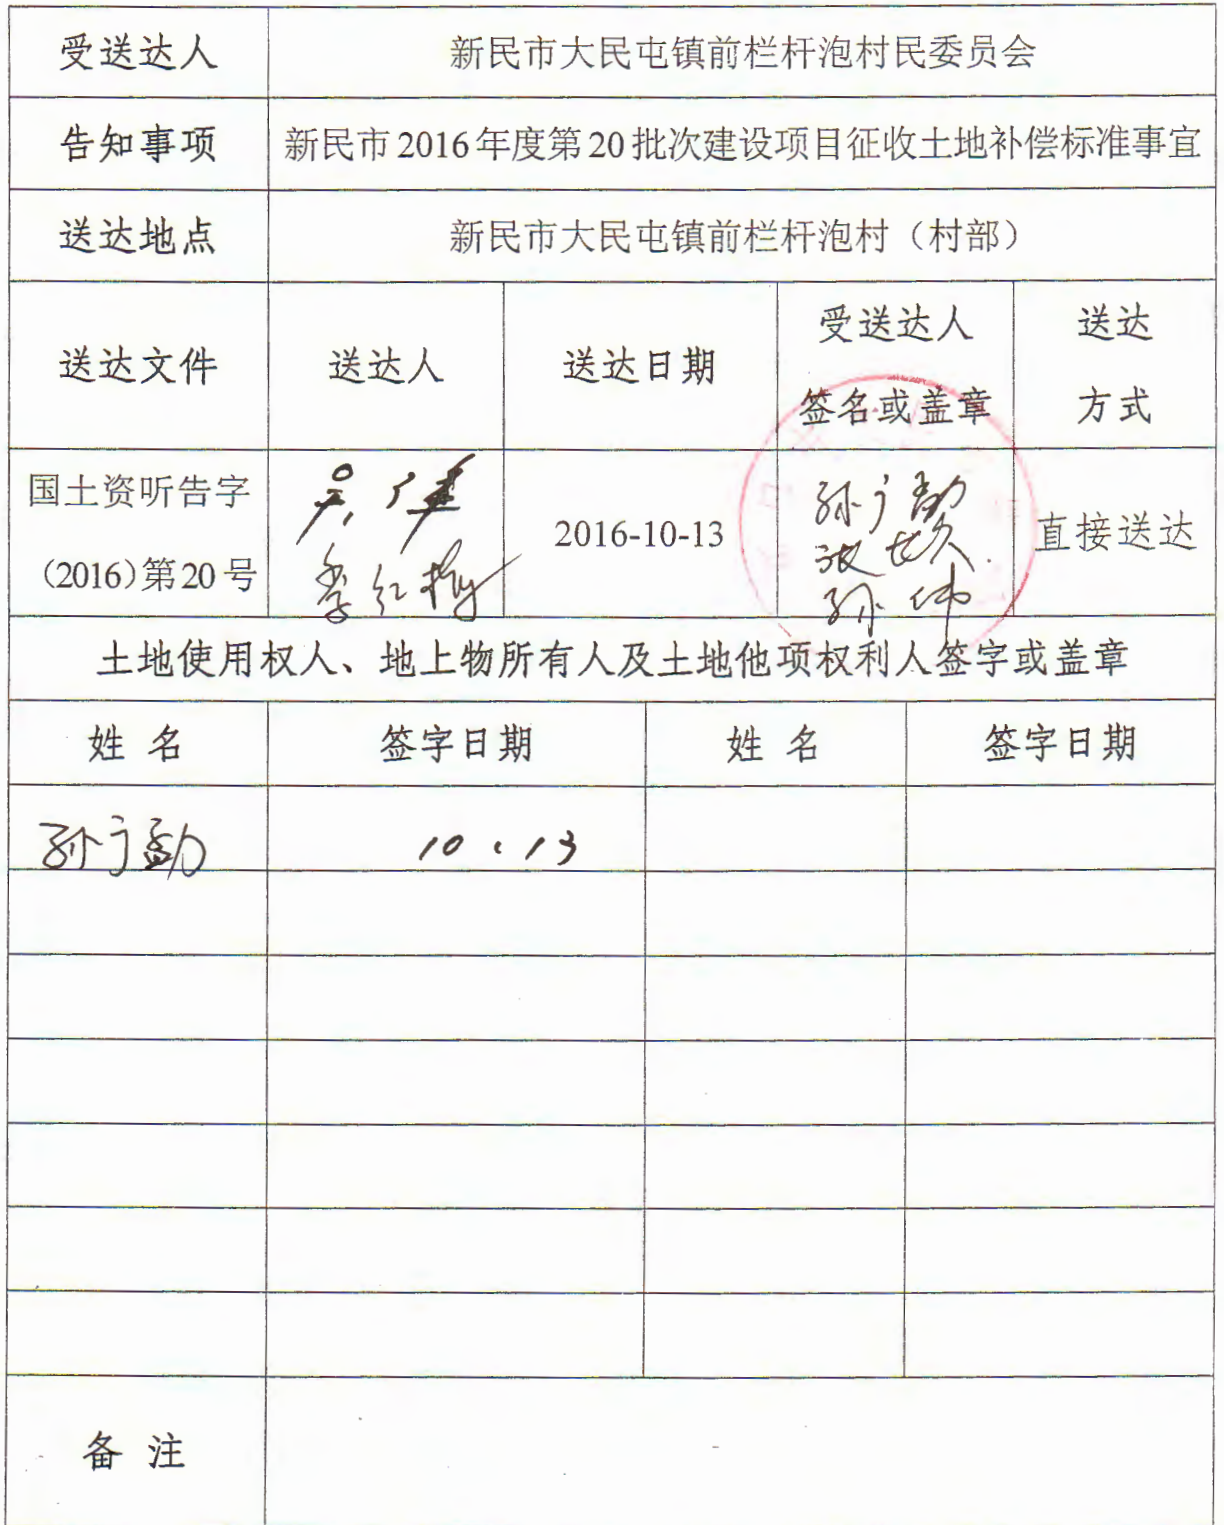 受送达人 新民市大民屯镇前栏杆泡村民委员会
告知事项 新民市2016年度第20批次建设项目征收土地补偿标准事宜
送达地点 新民市大民屯镇前栏杆泡村（村部）
送达文件 送达人 送达日期 受送达人 签名或盖章 送达 方式
国土资听告字
(2016)第20号
李红梅
2016-10-13
孙伟
直接送达
土地使用权人、地上物所有人及土地他项权利人签字或盖章
姓名 签字日期 姓名 签字日期
10.13
备注